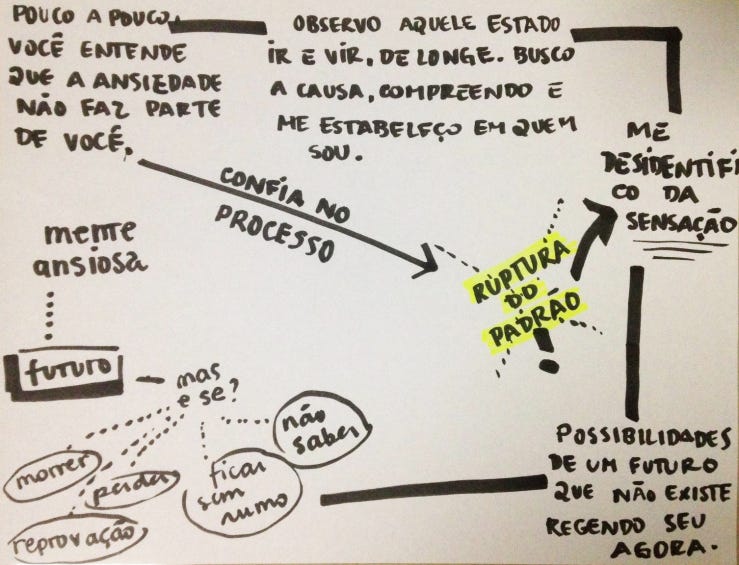 POUCO A POUCO,
VOCÊ ENTENDE
QUE A ANSIEDADE
NÃO FAZ PARTE
DE VOCÊ.
OBSERVO AQUELE ESTADO
IR E VIR, DE LONGE. BUSCO
A CAUSA, COMPREENDO E
ME ESTABELEÇO EM QUEM
SOU.
ME
DESIDENTIFI
CO DA
SENSAÇÃO
CONFIA NO
PROCESSO
RUPTURA
DO
PADRÃO
!
mente
ansiosa
futuro
mas
e se?
morrer
perder
reprovação
ficar
sem
rumo
não
saber
POSSIBILIDADES
DE UM FUTURO
QUE NÃO EXISTE
REGENDO SEU
AGORA.